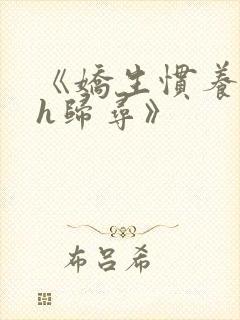 《嬌生慣養
h歸尋》
布呂希